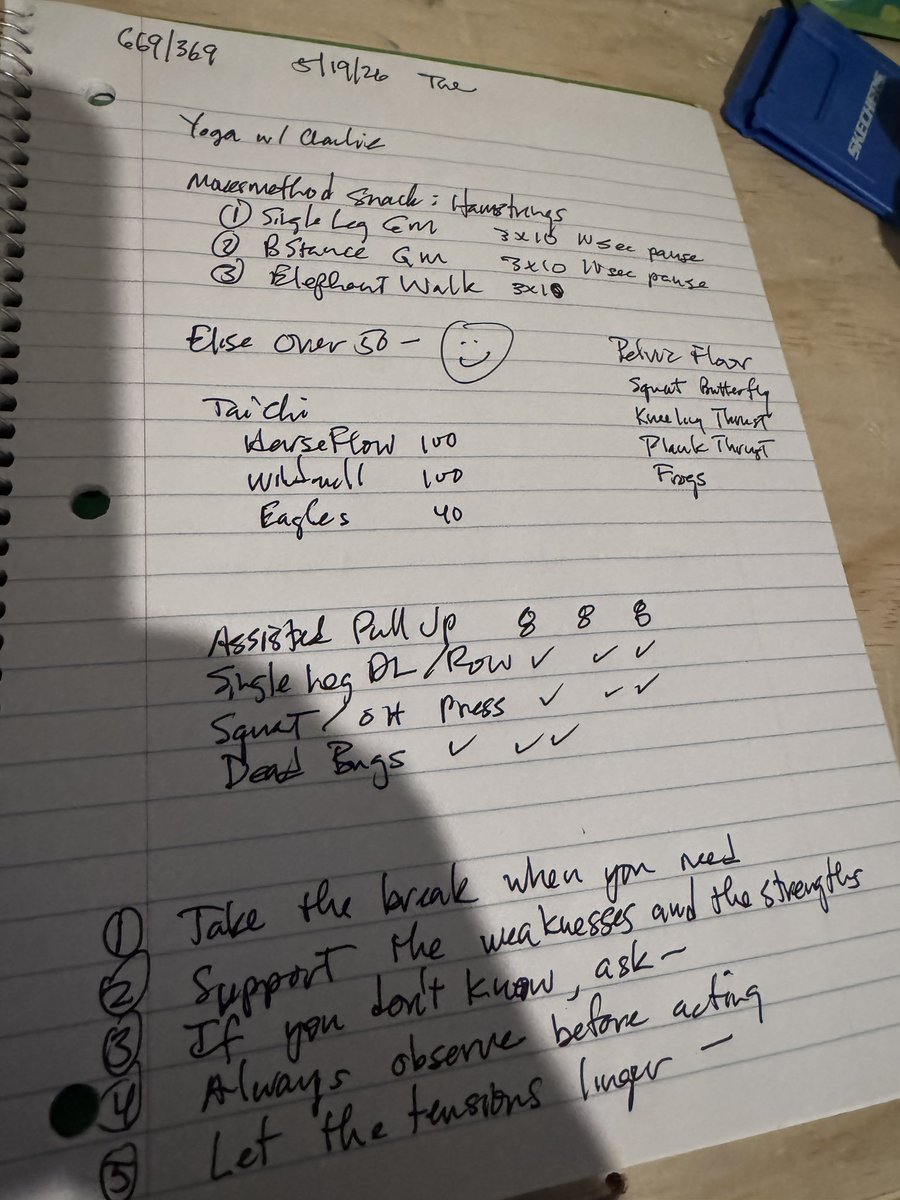 669/369 5/19/26 Tue
SKECHERS
Yoga w/ Charlie
Movesmethod Snack: Hamstrings
① Single Leg GM 3x10 w sec pause
② B Stance GM 3x10 w sec pause
③ Elephant Walk 3x10
Else Over 50 –
Pelvic Floor
Squat Butterfly
Kneeling Thrust
Plank Thrust
Frogs
Tai Chi
Horse Flow 100
Windmill 100
Eagles 40
Assisted Pull Up 8 8 8
Single Leg DL/Row ✓ ✓ ✓
Squat / OH Press ✓ ✓ ✓
Dead Bugs ✓ ✓ ✓
① Take the break when you need
② Support the weaknesses and the strengths
③ If you don't know, ask –
④ Always observe before acting
⑤ Let the tensions linger –